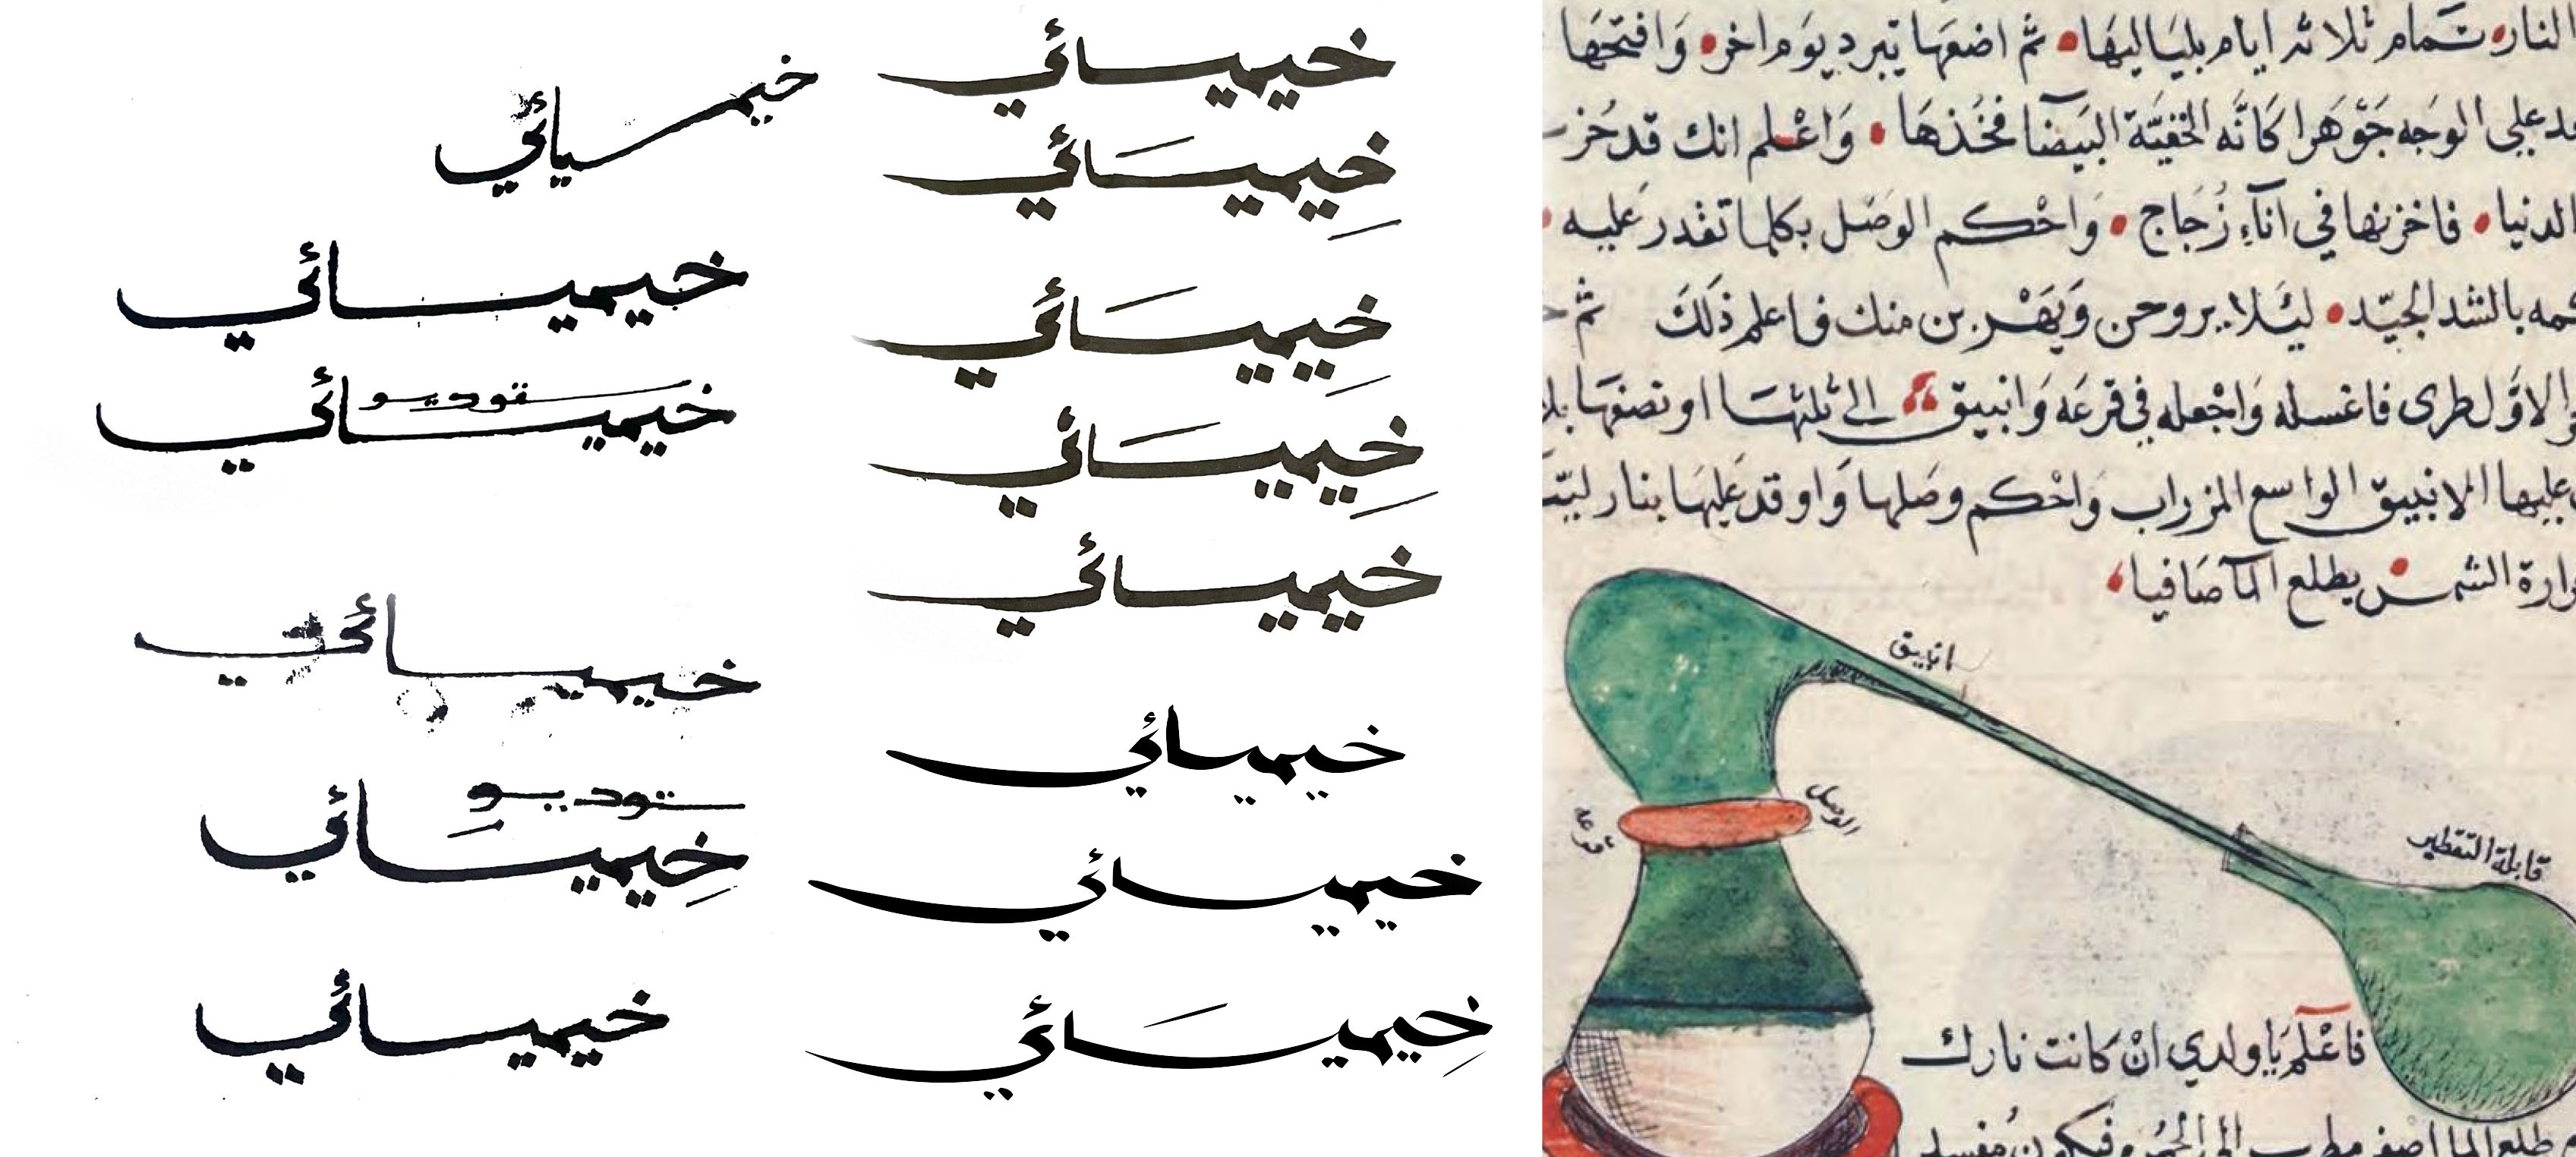 خيميائي
خيميائي
ستوديو
خيميَائي
خيميائي
ستوديو
خِيميَائي
خيميائي
خيميائي
خِيميَائي
خِيميَائي
خِيميَائي
خيميائي
خيميائي
خيميائي
خِيميَائي
النار تمام ثلاثة ايام بليَاليهَا ثم اضعهَا تبرد يوَم اخر وَافتحهَا
على الوجه جَوْهرا كانَّه الخفيّة البيَضا فخُذهَا وَاعْلم انك قد حُزت
الدنيا فاخزنها في انآءِ زُجَاج وَاحْكم الوصَل بكلما تقدر عَليه
بالشد الجيّد ليَلا يروحن وَيَهْربن منك فاعلم ذلكَ ثم
الاوَّل طرى فاغسله وَاجْعله في قرعَه وَانبيق الى ثلثهَا او نصفهَا
عليها الانبيق الواسع المزراب وَاحْكم وصَلها وَاوقد عَليهَا بنار
الشمس يطلع المآ صَافيا
انبيق
الوصل
قابلة التقطير
فاعْلم يَا ولدي انْ كانت نارك